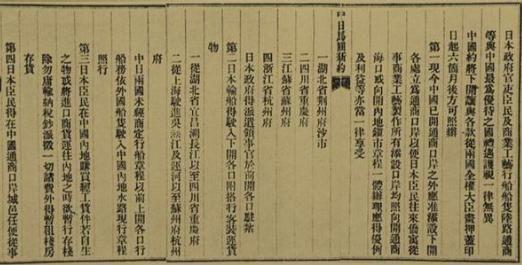 日本政府官吏臣民及商業工藝行船船隻陸路通商
等與中國最為優待之國禮遇護視一律無異
中國約將下開讓與各款從兩國全權大臣畫押蓋印
日起六個月後方可照辦
第一現今中國已開通商口岸之外應准添設下開
各處立為通商口岸以便日本臣民往來僑寓從
事商業工藝製作所有添設口岸均照向開通商
海口或向開內地鎮市章程一體辦理應得優例
及利益等亦當一律享受
日馬關新約
一湖北省荊州府沙市
二四川省重慶府
三江蘇省蘇州府
四浙江省杭州府
日本政府得派遣領事官於前開各口駐紮
第二日本輪船得駛入下開各口附搭行客裝運貨
物
從湖北省宜昌溯長江以至四川省重慶府
二從上海駛進吳淞江及運河以至蘇州府杭州
府
中日兩國未經商定行船章程以前上開各口行
船務依外國船隻駛入中國內地水路現行章程
照行
第三日本臣民在中國內地購買經工貨件若自生
之物或將進口商貨運往內地之時欲暫行存棧
除勿庸輸納稅鈔派徵一切諸費外得暫租棧房
存貨
第四日本臣民得在中國通商口岸城邑任便從事